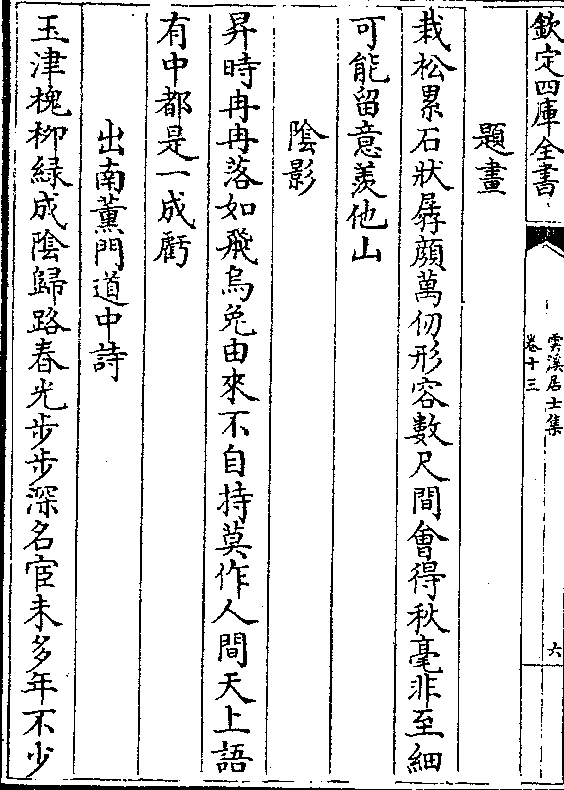 欽定四庫全書
雲溪居士集
卷十三
六
題畫
栽松累石狀孱顔萬仞形容數尺間會得秋毫非至細
可能留意羨他山
陰影
昇時冉冉落如飛烏兔由來不自持莫作人間天上語
有中都是一成虧
出南薰門道中詩
玉津槐柳緑成陰歸路春光步步深名宦未多年不少